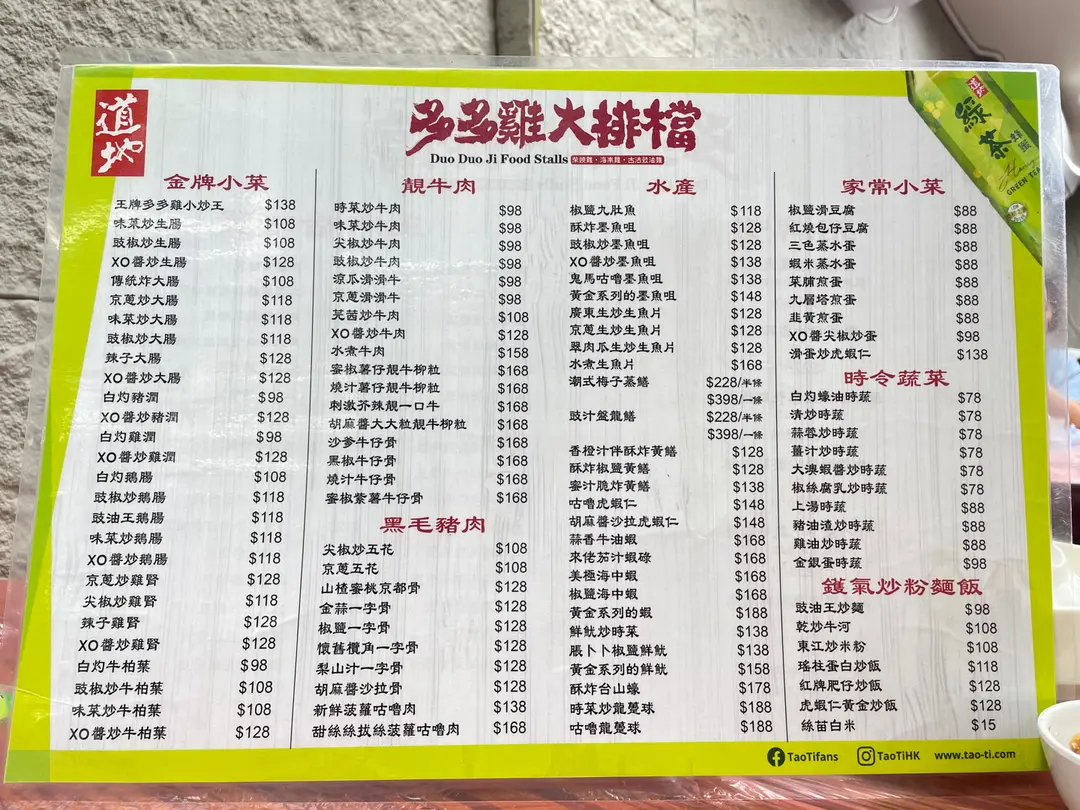 道地
多多雞大排檔
Duo Duo Ji Food Stalls 柴燒雞·海南雞·古法豉油雞
道地
綠茶
蜂蜜
Honey
GREEN TEA
金牌小菜
王牌多多雞小炒王 $138
味菜炒生腸 $108
豉椒炒生腸 $108
XO醬炒生腸 $128
傳統炸大腸 $108
京蔥炒大腸 $118
味菜炒大腸 $118
豉椒炒大腸 $118
辣子大腸 $128
XO醬炒大腸 $128
白灼豬潤 $98
XO醬炒豬潤 $128
白灼雞潤 $98
XO醬炒雞潤 $128
白灼鵝腸 $108
豉椒炒鵝腸 $118
豉油王鵝腸 $118
味菜炒鵝腸 $118
XO醬炒鵝腸 $118
京蔥炒雞腎 $128
尖椒炒雞腎 $118
辣子雞腎 $128
XO醬炒雞腎 $128
白灼牛柏葉 $98
豉椒炒牛柏葉 $108
味菜炒牛柏葉 $108
XO醬炒牛柏葉 $128
靚牛肉
時菜炒牛肉 $98
味菜炒牛肉 $98
尖椒炒牛肉 $98
豉椒炒牛肉 $98
涼瓜滑滑牛 $98
京蔥滑滑牛 $98
芫茜炒牛肉 $108
XO醬炒牛肉 $128
水煮牛肉 $158
蜜椒薯仔靚牛柳粒 $168
燒汁薯仔靚牛柳粒 $168
刺激芥辣靚一口牛 $168
胡麻醬大大粒靚牛柳粒 $168
沙爹牛仔骨 $168
黑椒牛仔骨 $168
燒汁牛仔骨 $168
蜜椒紫薯牛仔骨 $168
黑毛豬肉
尖椒炒五花 $108
京蔥五花 $108
山楂蜜桃京都骨 $128
金蒜一字骨 $128
椒鹽一字骨 $128
懷舊欖角一字骨 $128
梨山汁一字骨 $128
胡麻醬沙拉骨 $128
新鮮菠蘿咕嚕肉 $138
甜絲絲拔絲菠蘿咕嚕肉 $168
水產
椒鹽九肚魚 $118
酥炸墨魚咀 $128
豉椒炒墨魚咀 $128
XO醬炒墨魚咀 $138
鬼馬咕嚕墨魚咀 $138
黃金系列的墨魚咀 $148
廣東生炒生魚片 $128
京蔥生炒生魚片 $128
翠肉瓜生炒生魚片 $128
水煮生魚片 $168
潮式梅子蒸鱔 $228/半條
$398/一條
豉汁盤龍鱔 $228/半條
$398/一條
香橙汁伴酥炸黃鱔 $128
酥炸椒鹽黃鱔 $128
蜜汁脆炸黃鱔 $138
咕嚕虎蝦仁 $148
胡麻醬沙拉虎蝦仁 $148
蒜香牛油蝦 $168
來佬茄汁蝦碌 $168
美極海中蝦 $168
椒鹽海中蝦 $168
黃金系列的蝦 $188
鮮魷炒時菜 $138
脹卜卜椒鹽鮮魷 $138
黃金系列的鮮魷 $158
酥炸台山蠔 $178
時菜炒龍躉球 $188
咕嚕龍躉球 $188
家常小菜
椒鹽滑豆腐 $88
紅燒包仔豆腐 $88
三色蒸水蛋 $88
蝦米蒸水蛋 $88
菜脯煎蛋 $88
九層塔煎蛋 $88
韭黃煎蛋 $88
XO醬尖椒炒蛋 $98
滑蛋炒虎蝦仁 $138
時令蔬菜
白灼蠔油時蔬 $78
清炒時蔬 $78
蒜蓉炒時蔬 $78
薑汁炒時蔬 $78
大澳蝦醬炒時蔬 $78
椒絲腐乳炒時蔬 $78
上湯時蔬 $88
豬油渣炒時蔬 $88
雞油炒時蔬 $88
金銀蛋時蔬 $98
鑊氣炒粉麵飯
豉油王炒麵 $98
乾炒牛河 $108
東江炒米粉 $108
瑤柱蛋白炒飯 $118
紅牌肥仔炒飯 $128
虎蝦仁黃金炒飯 $128
絲苗白米 $15
TaoTifans TaoTiHK www.tao-ti.com